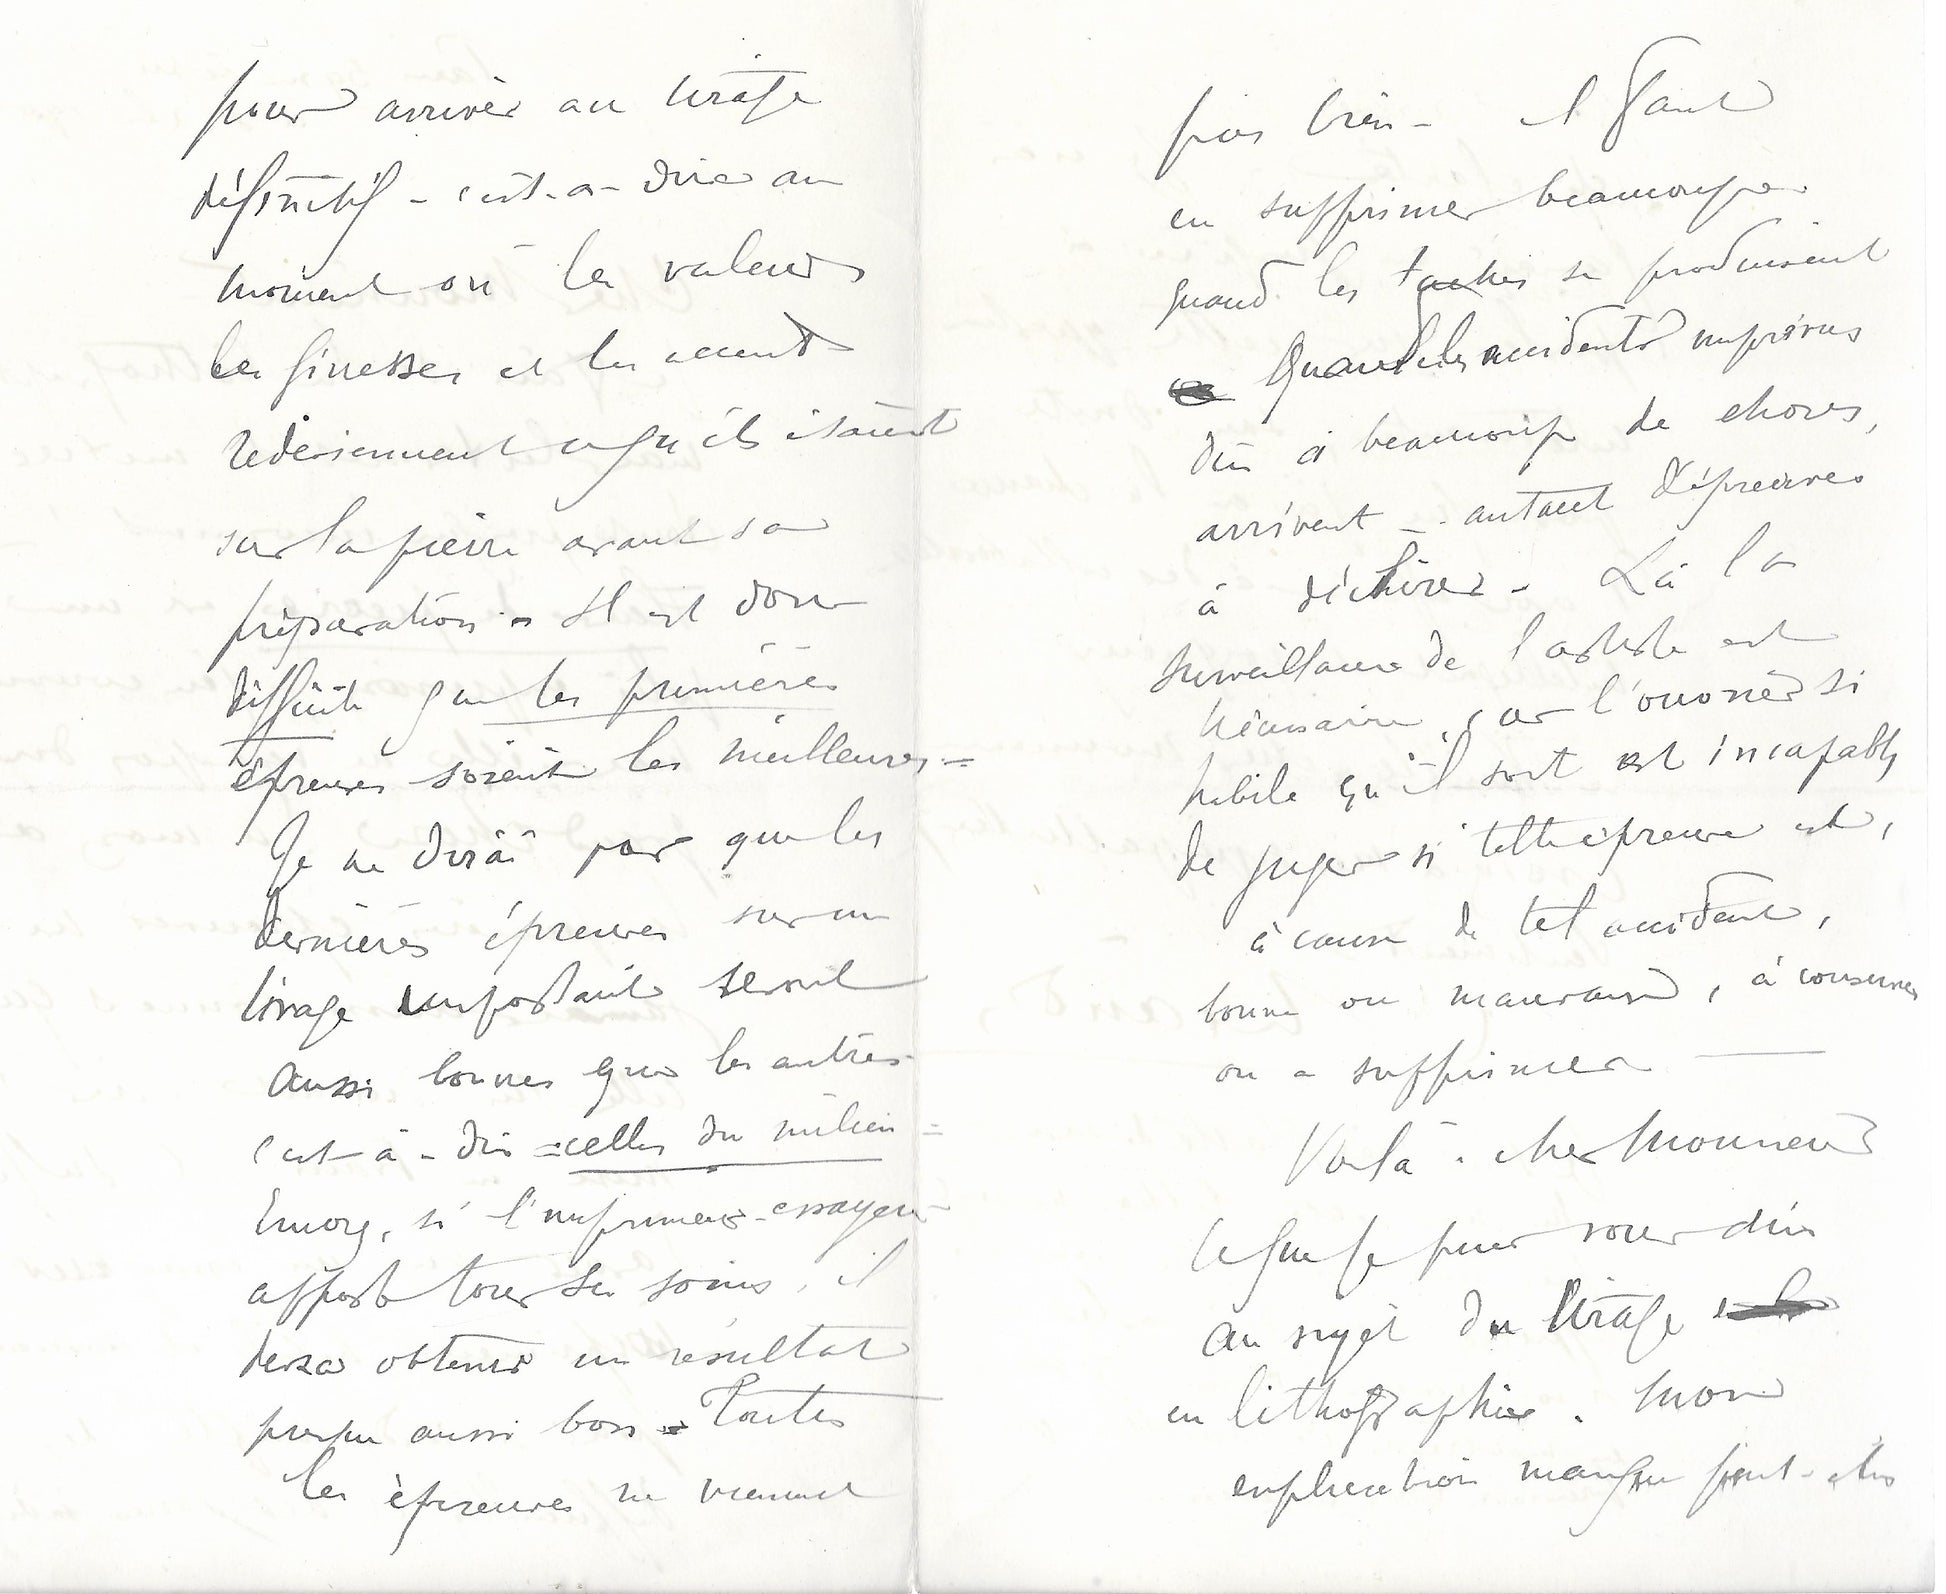 pour arriver au tirage
définitif - c'est-a-dire au
moment où les valeurs
les finesses et les accents
redeviennent ce qu'ils étaient
sur la pierre avant sa
préparation - Il est donc
difficile que les premières
épreuves soient les meilleures =
Je ne dirai pas que les
dernières épreuves sur un
tirage important seront
aussi bonnes que les autres
c'est-à-dire = celles du milieu =
Encore, si l'imprimeur-essayeur
apporte tous ses soins, il
devra obtenir un résultat
presque aussi bon = Toutes
les épreuves ne viennent
pas bien - il faut
en supprimer beaucoup
quand les taches se produisent
Quand les accidents imprévus
dûs à beaucoup de choses,
arrivent - autant d'épreuves
à déchirer - Là la
surveillance de l'artiste est
nécessaire, car l'ouvrier si
habile qu'il soit est incapable
de juger si telle épreuve est,
à cause de tel accident,
bonne ou mauvaise, à conserver
ou a supprimer —
Voilà - cher Monsieur
ce que je puis vous dire
au sujet du tirage
en lithographie. Mon
explication manque peut-être